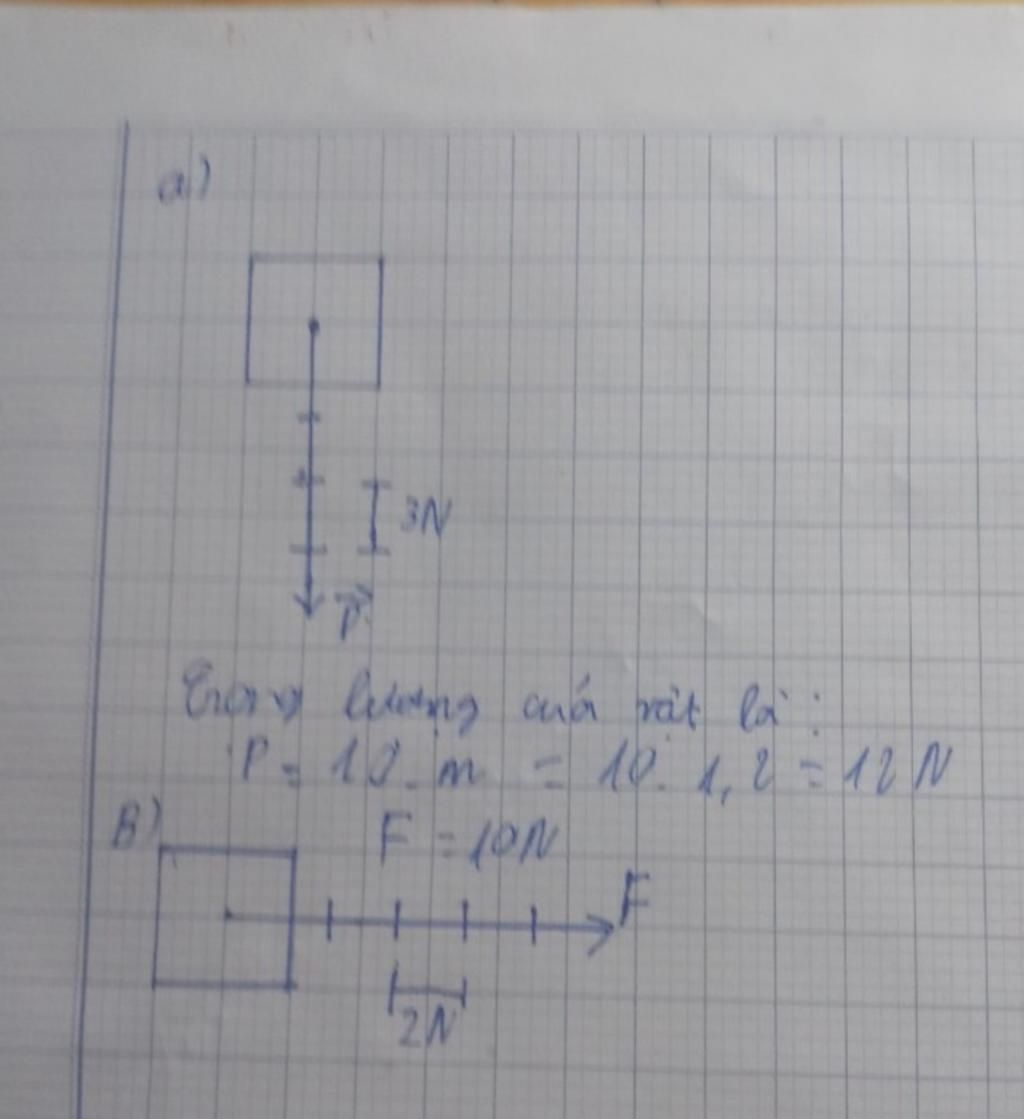 a)
3N
P
Trọng lượng của vật là :
P = 10. m = 10. 1,2 = 12 N
B)
F = 10N
F
2N